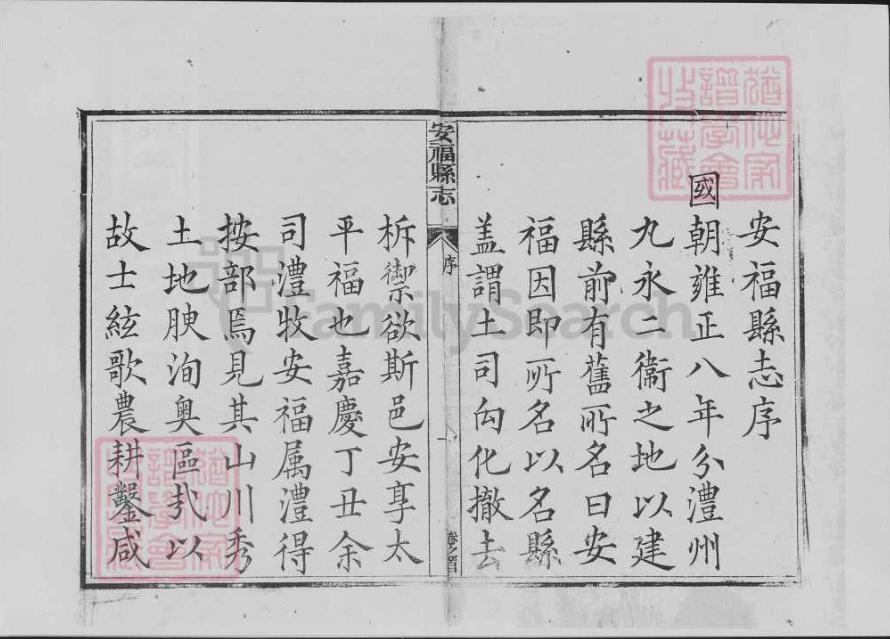 安福縣志序
國朝雍正八年分澧州
九永二衞之地以建
縣前有舊所名曰安
福因即所名以名縣
盖謂土司向化撤去
安福縣志
序
卷之首
柝禦欲斯邑安享太
平福也嘉慶丁丑余
司澧牧安福属澧得
按部焉見其山川秀
土地腴洵奥區㦲以
故士絃歌農耕鑿咸
FamilySearch